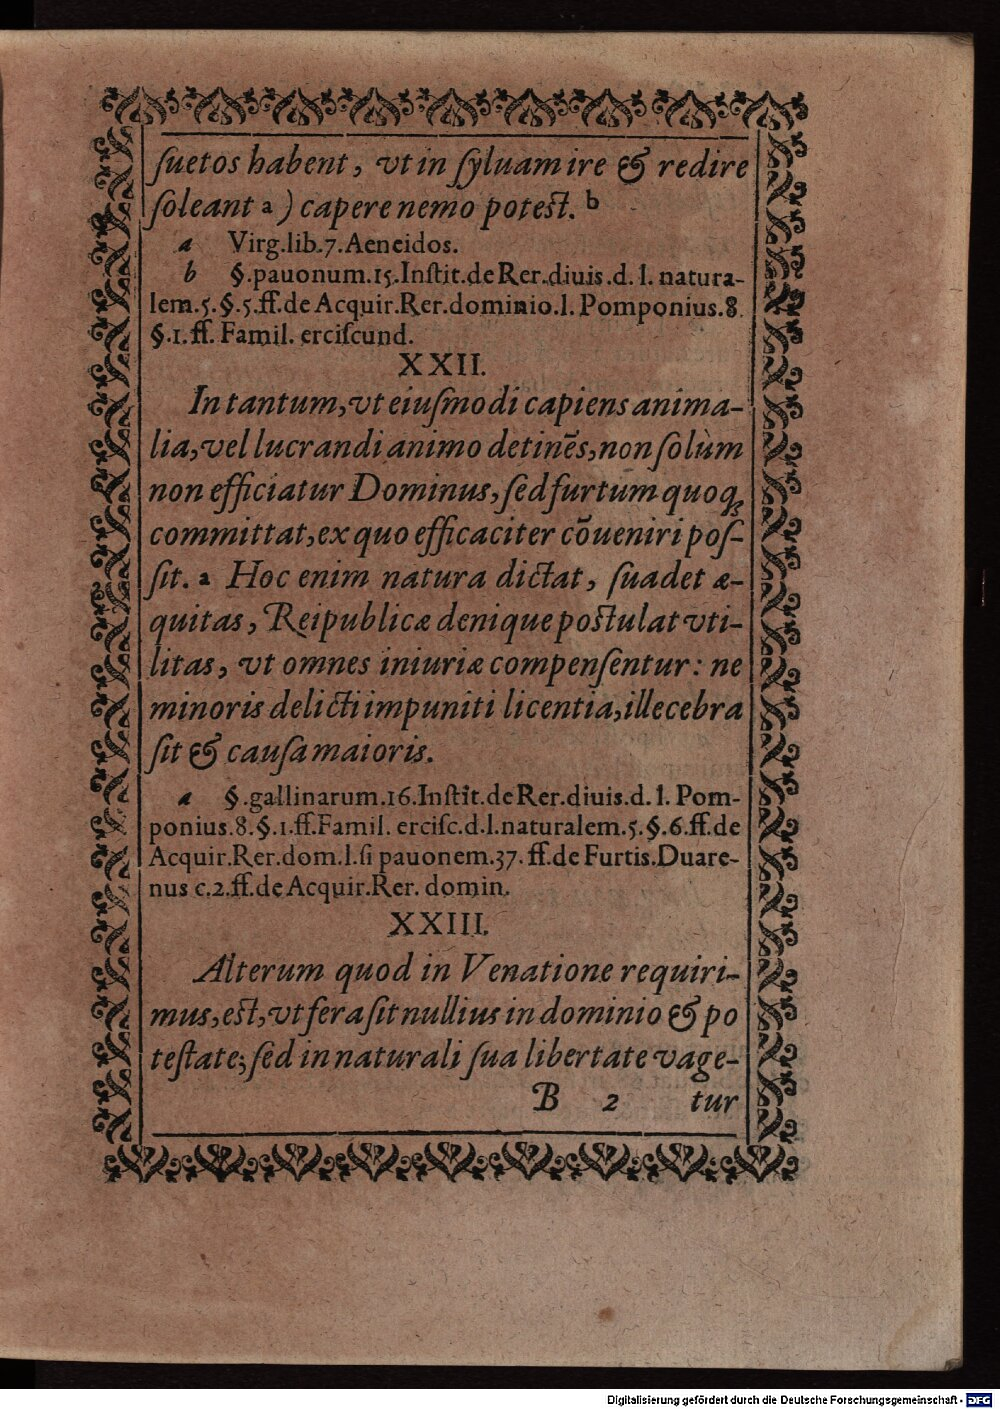 ſuetos habent, vt in ſyluam ire & redire
ſoleant a ) capere nemo poteſt. b
a Virg.lib.7.Aeneidos.
b §.pauonum.15.Inſtit.de Rer.diuis.d.l.natura-
lem.5.§.5.ff.de Acquir.Rer.dominio.l.Pomponius.8.
§.1.ff. Famil. erciſcund.
XXII.
In tantum,vt eiuſmodi capiens anima-
lia,vel lucrandi animo detinẽs,non ſolùm
non efficiatur Dominus,ſed furtum quoq;
committat,ex quo efficaciter cõueniri poſ-
ſit. a Hoc enim natura dictat, ſuadet æ-
quitas, Reipublicæ denique poſtulat vti-
litas, vt omnes iniuriæ compenſentur: ne
minoris delicti impuniti licentia,illecebra
ſit & cauſa maioris.
a §.gallinarum.16.Inſtit.de Rer.diuis.d.l. Pom-
ponius.8.§.1.ff.Famil. erciſc.d.l.naturalem.5.§.6.ff.de
Acquir.Rer.dom.l.ſi pauonem.37.ff.de Furtis.Duare-
nus c.2.ff.de Acquir.Rer. domin.
XXIII.
Alterum quod in Venatione requiri-
mus,eſt,vt fera ſit nullius in dominio & po
teſtate;ſed in naturali ſua libertate vage-
B 2 tur
Digitalisierung gefördert durch die Deutsche Forschungsgemeinschaft - DFG